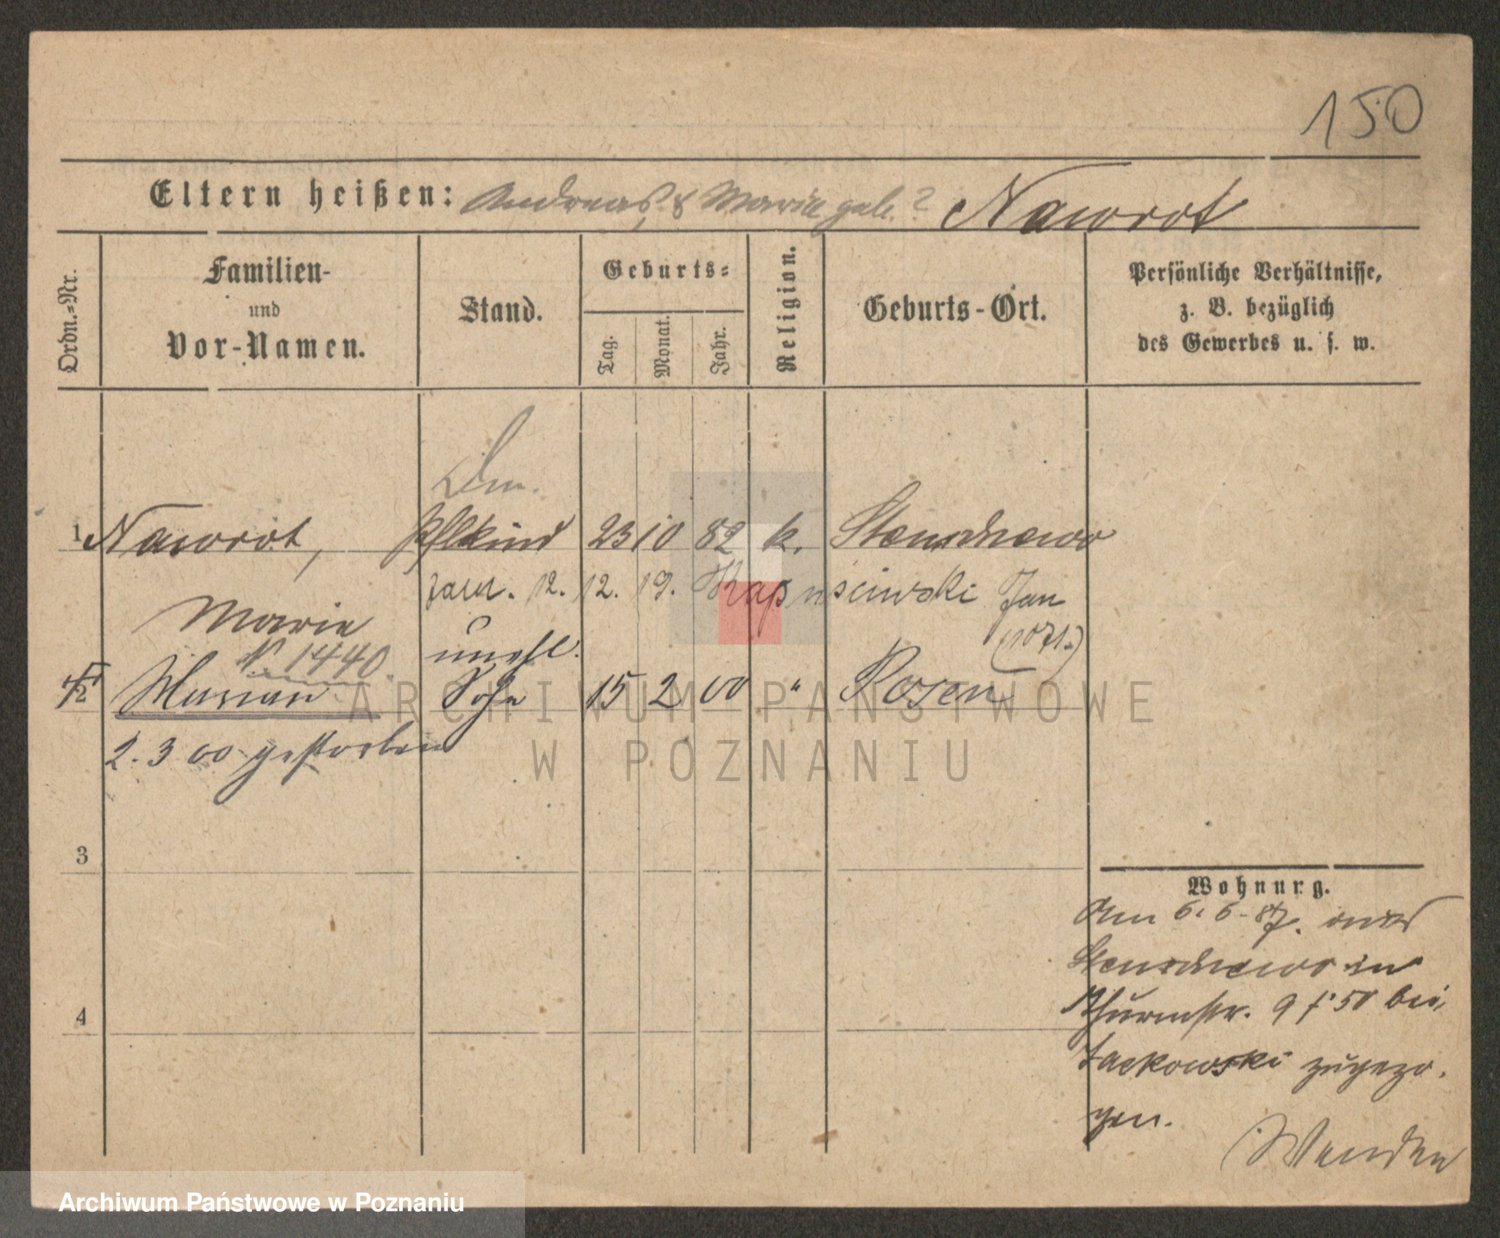 150
Eltern heißen: Andreas & Maria geb. ? Nawrot
Ordn.-Nr.
Familien-
und
Vor-Namen.
Stand.
Geburts-
Tag.
Monat.
Jahr.
Religion.
Geburts-Ort.
Persönliche Verhältnisse,
z. B. bezüglich
des Gewerbes u. s. w.
1 Nawrot, Pflkind 23 10 82 k. Stenschewo
12. 12. 19. Kapuściński Jan
Marie
(1071.)
N. 1440. unehl.
Marian Sohn 15 2 00 " Posen
2. 3 00 gestorben
3
4
Wohnung.
Am 6. 6. 87. aus
Stenschewo in
Thurmstr. 9 bei
Lackowski zugezo-
gen.
ARCHIWUM PAŃSTWOWE
W POZNANIU
Archiwum Państwowe w Poznaniu